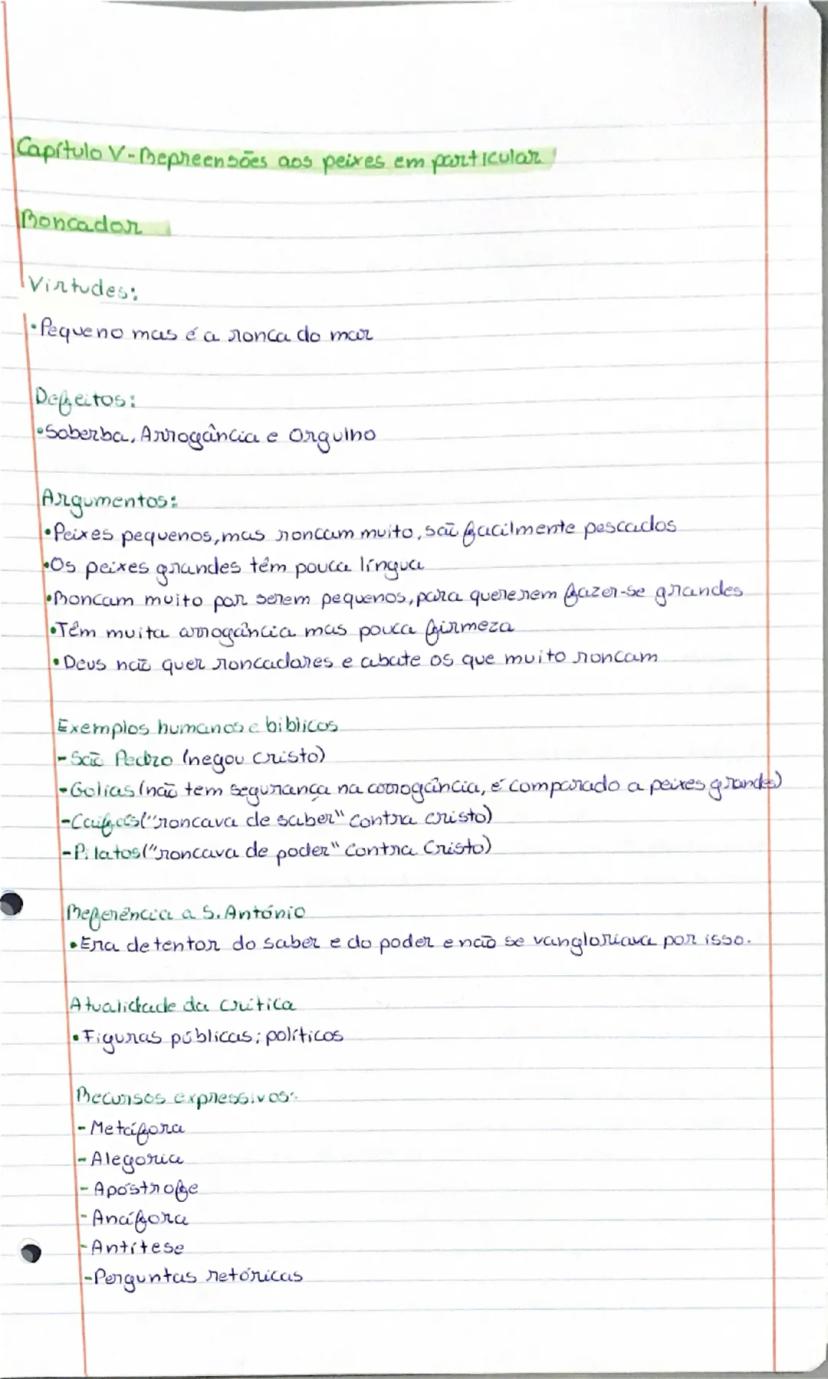 Capítulo V - Repreensões aos peixes em particular
Roncador
Virtudes:
• Pequeno mas é a ronca do mar
Defeitos:
• Soberba, Arrogância e Orgulho
Argumentos:
• Peixes pequenos, mas roncam muito, são facilmente pescados
• Os peixes grandes têm pouca língua
• Roncam muito por serem pequenos, para quererem fazer-se grandes
• Têm muita arrogância mas pouca firmeza
• Deus não quer roncadores e abate os que muito roncam
Exemplos humanos e bíblicos
- São Pedro (negou cristo)
- Golias (não tem segurança na arrogância, é comparado a peixes grandes)
- Caifás ("roncava de saber" contra cristo)
- Pilatos ("roncava de poder" contra Cristo)
Referência a S. António
• Era detentor do saber e do poder e não se vangloriava por isso.
Atualidade da crítica
• Figuras públicas; políticos
Recursos expressivos:
- Metáfora
- Alegoria
- Apóstrofe
- Anáfora
- Antítese
- Perguntas retóricas